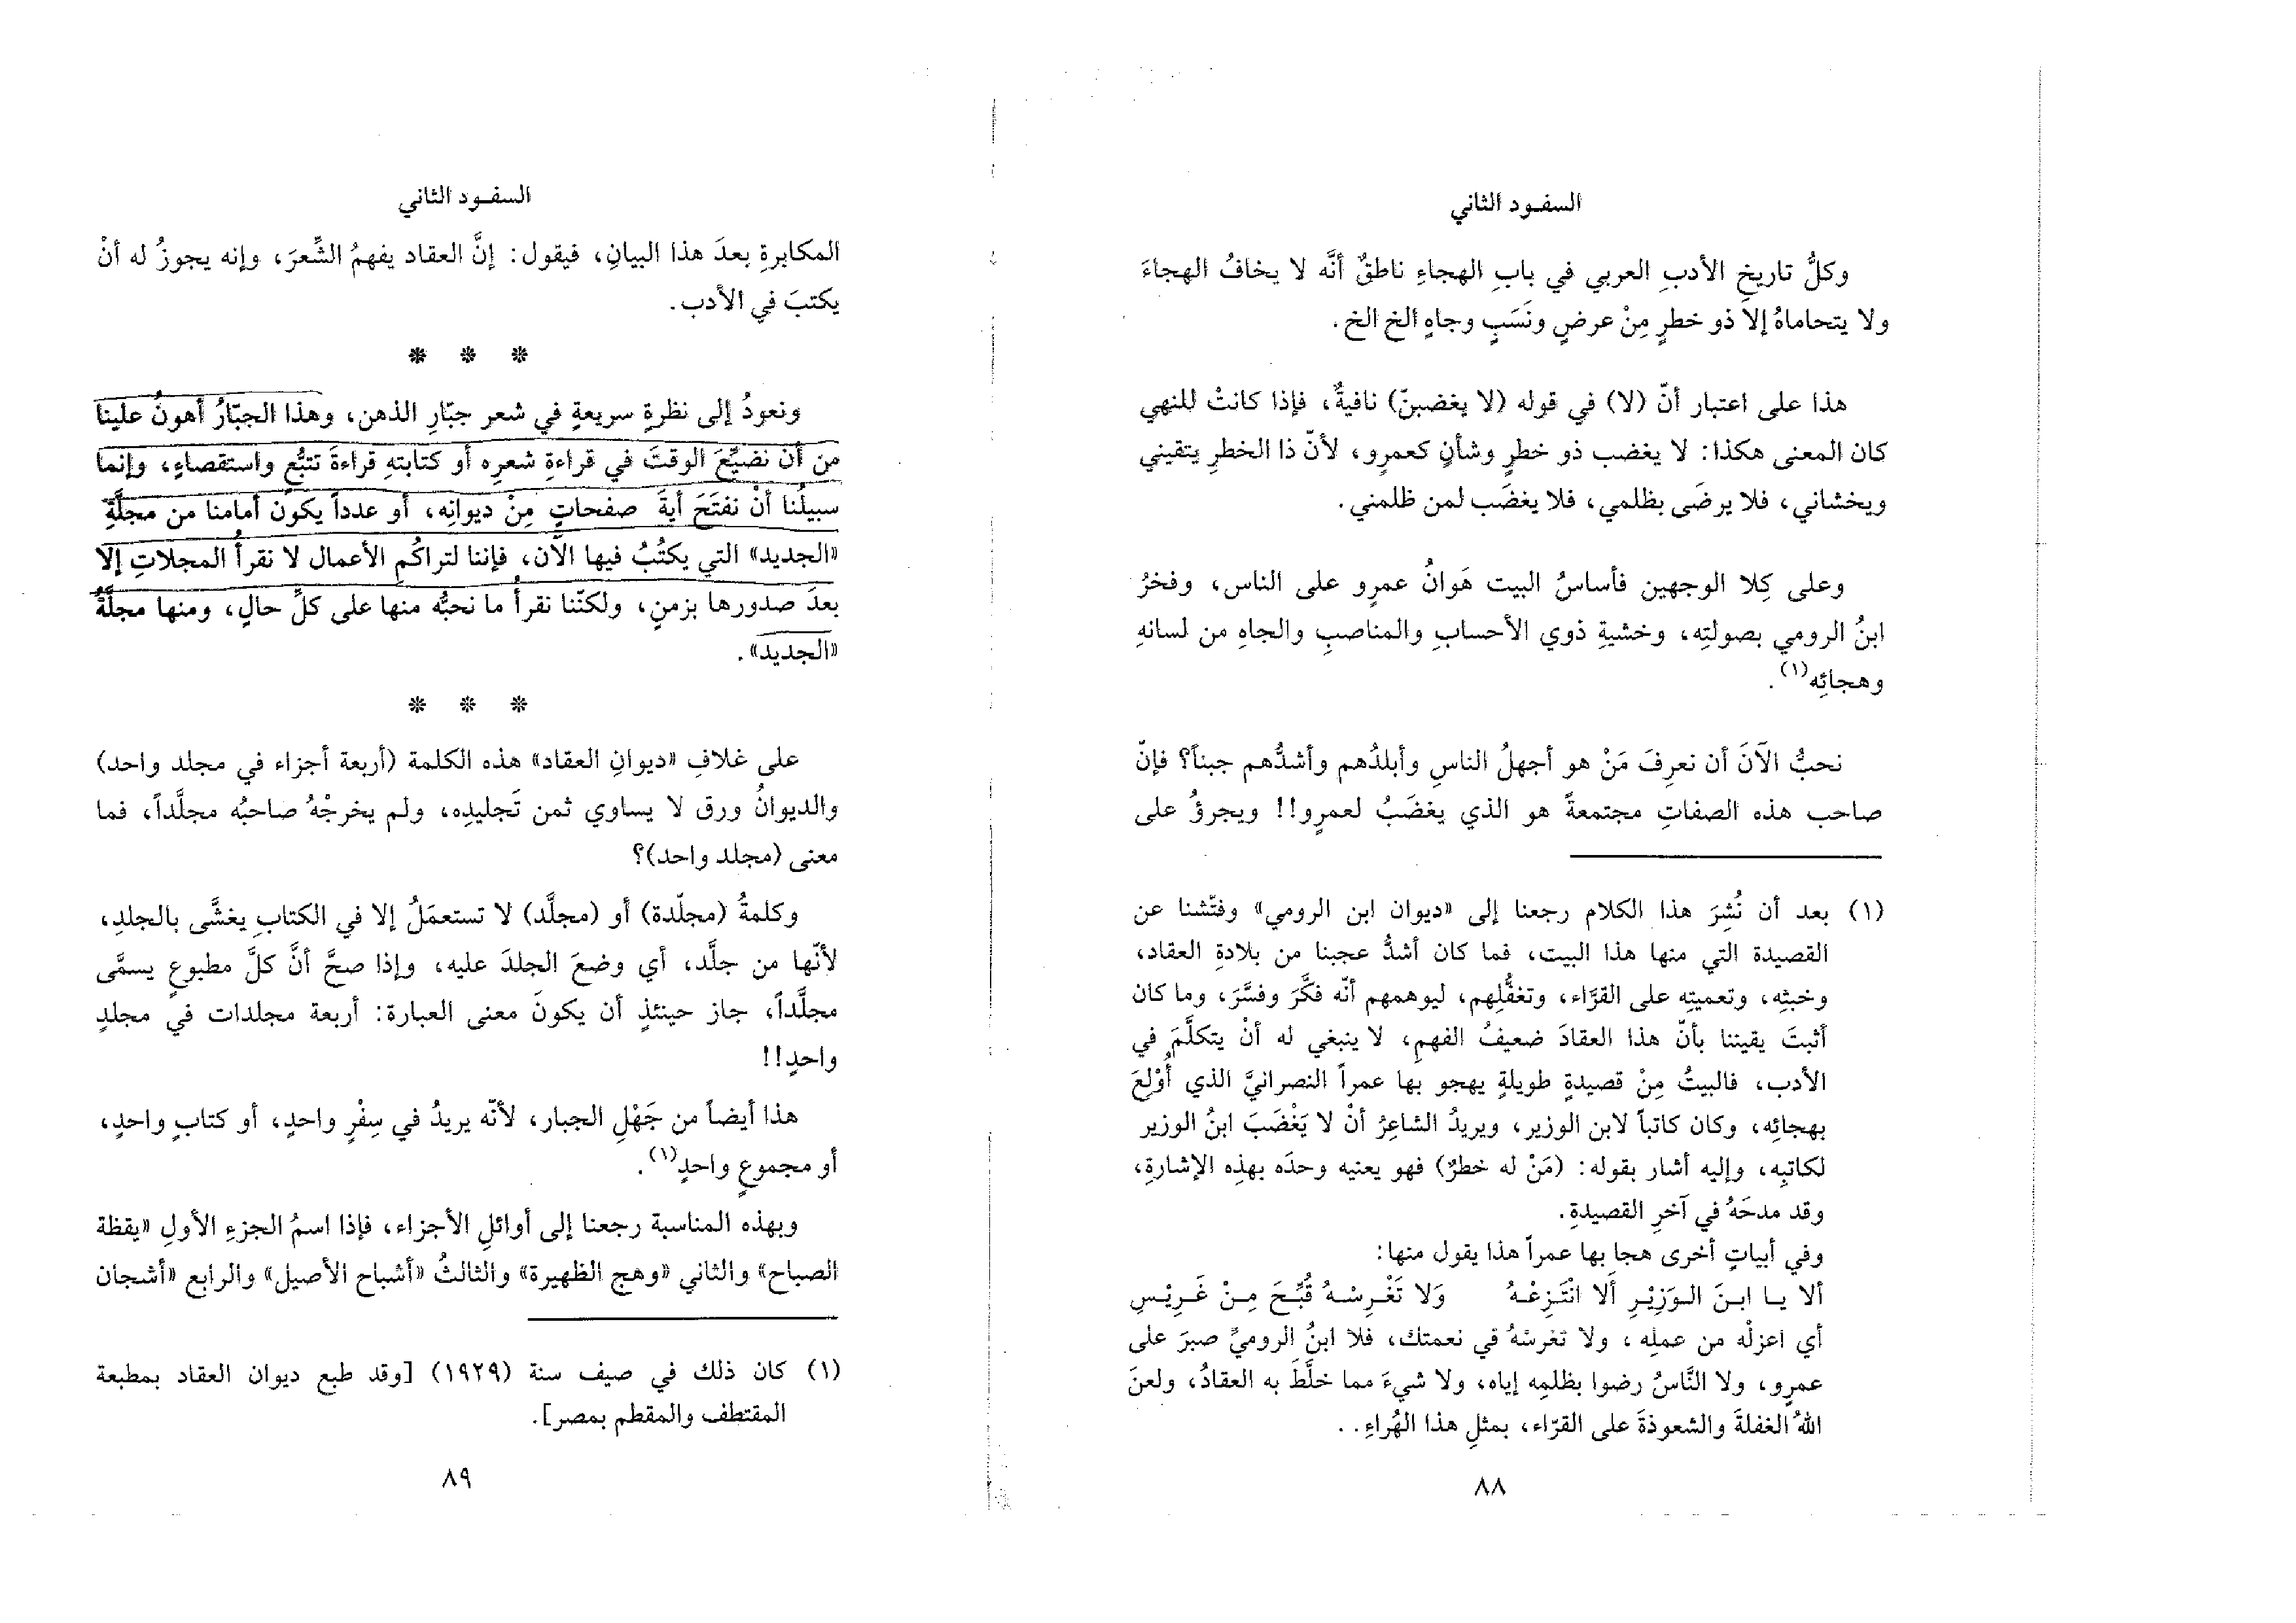 السفود الثاني
وكلُّ تاريخِ الأدبِ العربي في بابِ الهجاءِ ناطقٌ أنَّه لا يخافُ الهجاءَ
ولا يتحاماهُ إلَّا ذو خطرٍ مِنْ عرضٍ ونَسَبٍ وجاهٍ الخ الخ.
هذا على اعتبار أنّ (لا) في قوله (لا يغضبنّ) نافيةٌ، فإذا كانتْ للنهي
كان المعنى هكذا: لا يغضب ذو خطرٍ وشأنٍ كعمرِو، لأنّ ذا الخطرِ يتقيني
ويخشاني، فلا يرضَى بظلمي، فلا يغضَب لمن ظلمني.
وعلى كِلا الوجهين فأساسُ البيت هَوانُ عمرِو على الناس، وفخرُ
ابنُ الرومي بصولتِه، وخشيةِ ذوي الأحسابِ والمناصبِ والجاهِ من لسانهِ
وهجائِه(١).
نحبُّ الآنَ أن نعرِفَ مَنْ هو أجهلُ الناسِ وأبلدُهم وأشدُّهم جبناً؟ فإنّ
صاحب هذه الصفاتِ مجتمعةً هو الذي يغضَبُ لعمرِو!! ويجرؤُ على
(١) بعد أن نُشِرَ هذا الكلام رجعنا إلى «ديوان ابن الرومي» وفتّشنا عن
القصيدة التي منها هذا البيت، فما كان أشدُّ عجبنا من بلادةِ العقاد،
وخبثِه، وتعميتِه على القرَّاء، وتغفُّلِهم، ليوهمهم أنّه فكَّرَ وفسَّرَ، وما كان
أثبتَ يقيننا بأنّ هذا العقادَ ضعيفُ الفهمِ، لا ينبغي له أنْ يتكلَّمَ في
الأدب، فالبيتُ مِنْ قصيدةٍ طويلةٍ يهجو بها عمراً النصرانيَّ الذي أُوْلِعَ
بهجائِه، وكان كاتباً لابن الوزير، ويريدُ الشاعِرُ أنْ لا يَغْضَبَ ابنُ الوزير
لكاتبِه، وإليه أشار بقوله: (مَنْ له خطرٌ) فهو يعنيه وحدَه بهذِه الإشارةِ،
وقد مدحَهُ في آخرِ القصيدةِ.
وفي أبياتٍ أخرى هجا بها عمراً هذا يقول منها:
ألا يـا ابـنَ الـوَزِيْـرِ أَلا انْتَـزِعْـهُ ولا تَغْـرِسْـهُ قُبِّـحَ مِـنْ غَـرِيْـسِ
أي اعزلْه من عملِه، ولا تغرسْهُ في نعمتك، فلا ابنُ الروميِّ صبرَ على
عمرِو، ولا النَّاسُ رضوا بظلمِه إياه، ولا شيءَ مما خلَّطَ به العقادُ، ولعنَ
اللهُ الغفلةَ والشعوذةَ على القرّاء، بمثلِ هذا الهُراءِ..
٨٨
السفود الثاني
المكابرةِ بعدَ هذا البيانِ، فيقول: إنَّ العقاد يفهمُ الشِّعرَ، وإنه يجوزُ له أنْ
يكتبَ في الأدب.
* * *
ونعودُ إلى نظرةٍ سريعةٍ في شعر جبّارِ الذهن، وهذا الجبّارُ أهونُ علينا
من أن نضيِّعَ الوقتَ في قراءةِ شعرِه أو كتابتهِ قراءةَ تتبُّعٍ واستقصاءٍ، وإنما
سبيلُنا أنْ نفتَحَ أيةَ صفحاتٍ مِنْ ديوانِه، أو عدداً يكون أمامنا من مجلَّةِ
«الجديد» التي يكتُبُ فيها الآن، فإننا لتراكُمِ الأعمال لا نقرأُ المجلاتِ إلَّا
بعدَ صدورها بزمنٍ، ولكنّنا نقرأُ ما نحبُّه منها على كلِّ حالٍ، ومنها مجلَّةُ
«الجديد».
* * *
على غلافِ «ديوانِ العقاد» هذه الكلمة (أربعة أجزاء في مجلد واحد)
والديوانُ ورق لا يساوي ثمن تَجليدِه، ولم يخرجْهُ صاحبُه مجلَّداً، فما
معنى (مجلد واحد)؟
وكلمةُ (مجلّدة) أو (مجلَّد) لا تستعمَلُ إلا في الكتابِ يغشَّى بالجلدِ،
لأنّها من جلَّد، أي وضعَ الجلدَ عليه، وإذا صحَّ أنَّ كلَّ مطبوعٍ يسمَّى
مجلَّداً، جاز حينئذٍ أن يكونَ معنى العبارة: أربعة مجلدات في مجلدٍ
واحدٍ!!
هذا أيضاً من جَهْلِ الجبار، لأنّه يريدُ في سِفْرٍ واحدٍ، أو كتابٍ واحدٍ،
أو مجموعٍ واحدٍ(١).
وبهذه المناسبة رجعنا إلى أوائلِ الأجزاء، فإذا اسمُ الجزءِ الأولِ «يقظة
الصباح» والثاني «وهج الظهيرة» والثالثُ «أشباح الأصيل» والرابع «أشجان
(١) كان ذلك في صيف سنة (١٩٢٩) [وقد طبع ديوان العقاد بمطبعة
المقتطف والمقطم بمصر].
٨٩